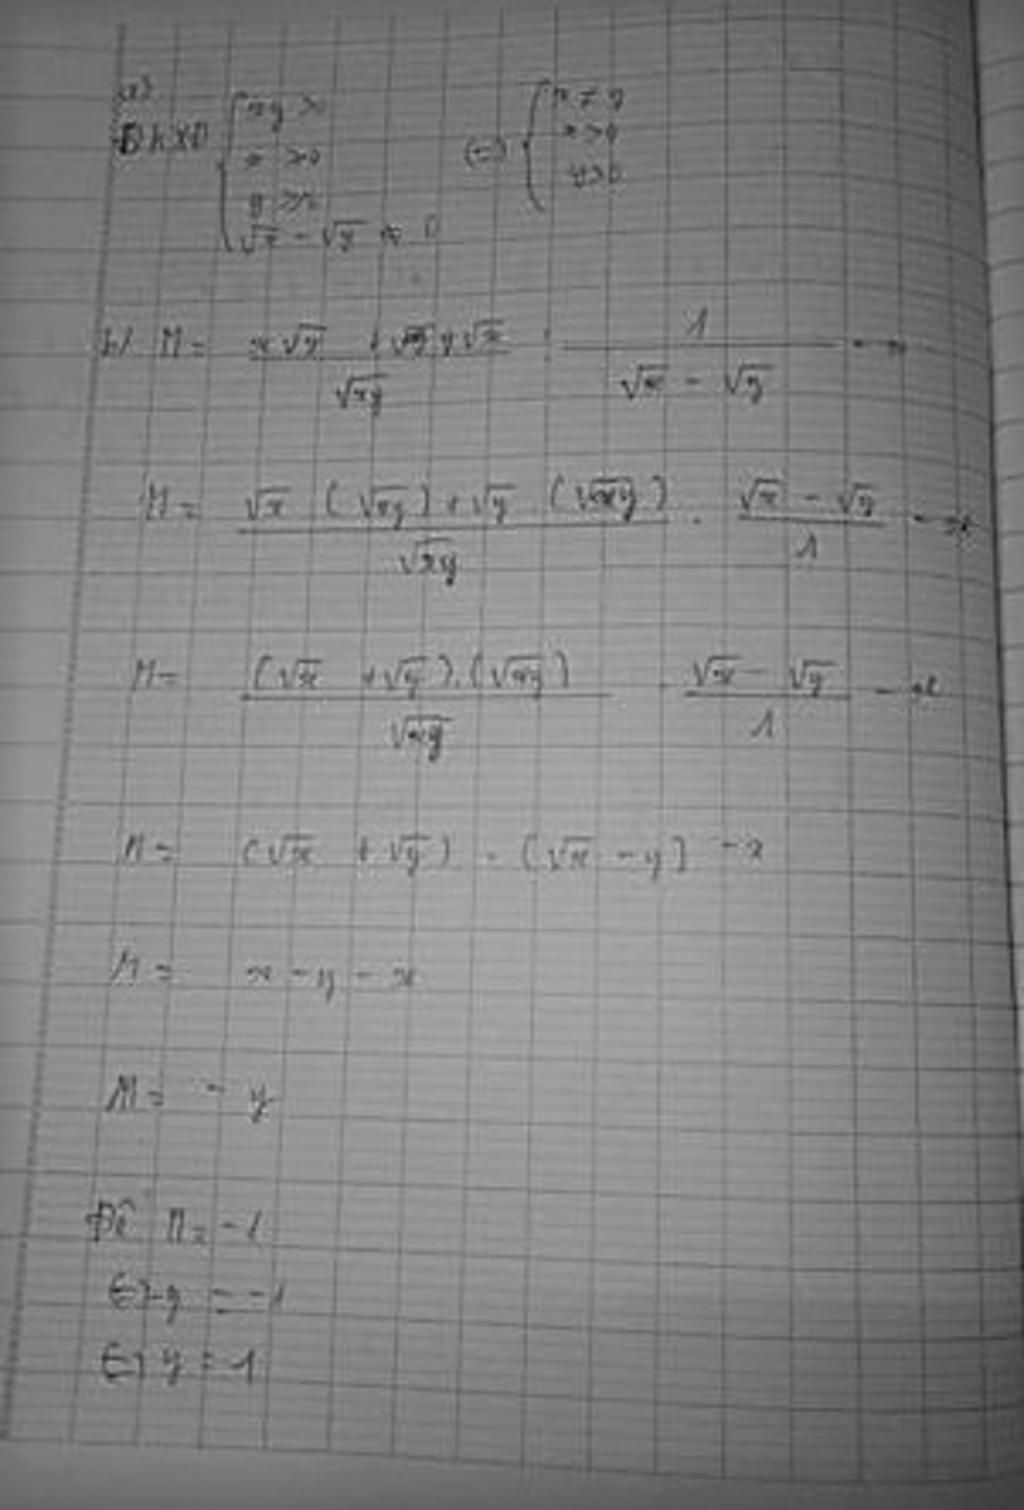 a)
ĐKXĐ { xy > 0 (=) { x ≠ y
x > 0 x > 0
y > 0 y > 0
√x - √y ≠ 0
b) M = (x√y + y√x)/√xy : 1/(√x - √y) - x
M = (√x (√xy) + √y (√xy))/√xy . (√x - √y)/1 - x
M = ((√x + √y).(√xy))/√xy . (√x - √y)/1 - x
M = (√x + √y) . (√x - y) - x
M = x - y - x
M = - y
Để M = -1
(=) -y = -1
(=) y = 1